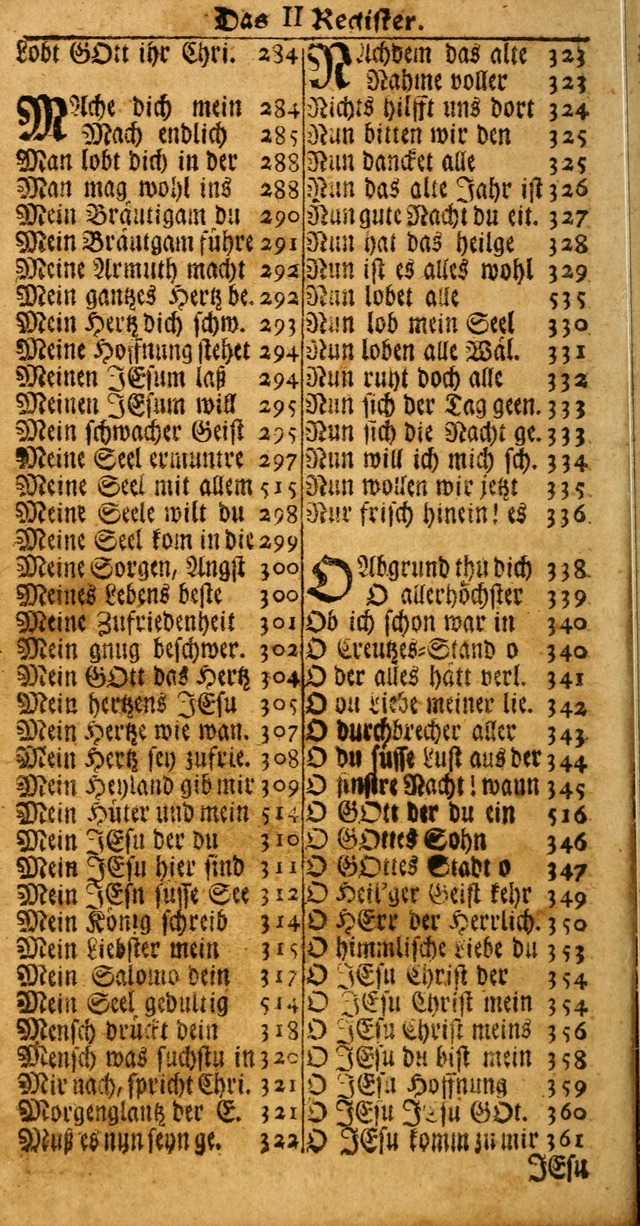 Das II Register.
Lobt GOtt ihr Chri. 284
MAche dich mein 284
Mach endlich 285
Man lobt dich in der 288
Man mag wohl ins 288
Mein Bräutigam du 290
Mein Bräutgam führe 291
Meine Armuth macht 292
Mein gantzes Hertz be. 292
Mein Hertz dich schw. 293
Meine Hoffnung stehet 294
Meinen JEsum laß 294
Meinen JEsum will 295
Mein schwacher Geist 295
Meine Seel ermuntre 297
Meine Seel mit allem 515
Meine Seele wilt du 298
Meine Seel kom in die 299
Meine Sorgen, Angst 300
Meines Lebens beste 300
Meine Zufriedenheit 301
Mein gnug beschwer. 302
Mein GOtt das Hertz 304
Mein hertzens JEsu 305
Mein Hertze wie wan. 307
Mein Hertz sey zufrie. 308
Mein Heyland gib mir 309
Mein Hüter und mein 514
Mein JEsu der du 310
Mein JEsu hier sind 311
Mein JEsu süsse See 312
Mein König schreib 314
Mein Liebster mein 315
Mein Salomo dein 317
Mein Seel gedultig 514
Mensch drückt dein 318
Mensch was suchstu in 320
Mir nach, spricht Chri. 321
Morgenglantz der E. 321
Muß es nun seyn ge. 322
NAchdem das alte 323
Nahme voller 323
Nichts hilfft uns dort 324
Nun bitten wir den 325
Nun dancket alle 325
Nun das alte Jahr ist 326
Nun gute Nacht du eit. 327
Nun hat das heilge 328
Nun ist es alles wohl 329
Nun lobet alle 535
Nun lob mein Seel 330
Nun loben alle Wäl. 331
Nun ruht doch alle 332
Nun sich der Tag geen. 333
Nun sich die Nacht ge. 333
Nun will ich mich sch. 334
Nun wollen wir jetzt 335
Nur frisch hinein! es 336
O Abgrund thu dich 338
O allerhöchster 339
Ob ich schon war in 340
O Creutzes-Stand o 340
O der alles hätt verl. 341
O du Liebe meiner lie. 342
O durchbrecher aller 343
O du süsse Lust aus der 344
O finstre Nacht! wann 345
O GOtt der du ein 516
O GOttes Sohn 346
O GOttes Stadt o 347
O Heil'ger Geist kehr 349
O HErr der Herrlich. 350
O himmlische Liebe du 353
O JEsu Christ der 354
O JEsu Christ mein 354
O JEsu Christ meins 356
O JEsu du bist mein 358
O JEsu Hoffnung 359
O JEsu JEsu GOt. 360
O JEsu komm zu mir 361
JEsu